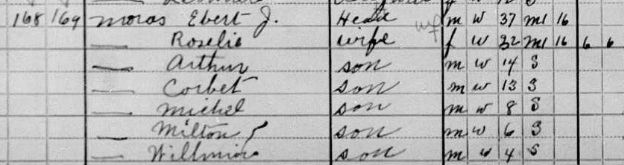 168 169 Moras Ebert J. Head m w 37 M1 16
— Roselie wife wf f w 32 M1 16 6 6
— Arthur son m w 14 S
— Corbet son m w 13 S
— Michel son m w 8 S
— Milton son m w 6 S
— son m w 4 S